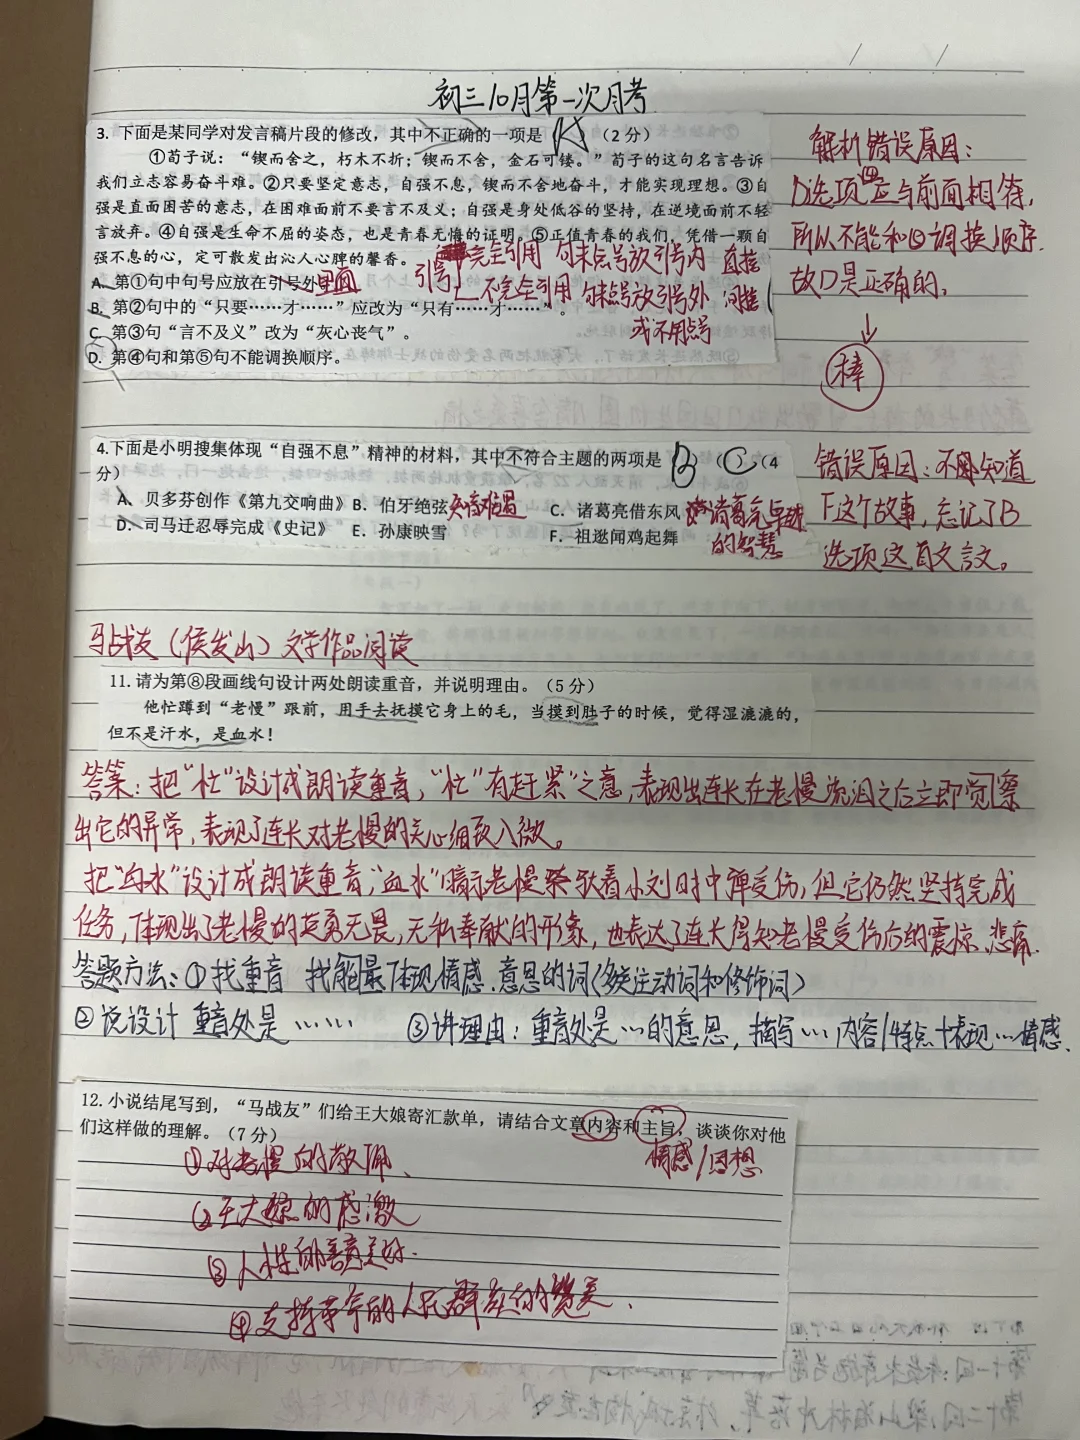 初三10月第一次月考
3. 下面是某同学对发言稿片段的修改，其中不正确的一项是（A）（2 分）
①荀子说：“锲而舍之，朽木不折；锲而不舍，金石可镂。”荀子的这句名言告诉
我们立志容易奋斗难。②只要坚定意志，自强不息，锲而不舍地奋斗，才能实现理想。③自
强是直面困苦的意志，在困难面前不要言不及义；自强是身处低谷的坚持，在逆境面前不轻
言放弃。④自强是生命不屈的姿态，也是青春无悔的证明。⑤正值青春的我们，凭借一颗自
强不息的心，定可散发出沁人心脾的馨香。
完全引用 句末点号放引号内 直接
A. 第①句中句号应放在引号外里面
引号 不完全引用 句末点号放引号外 间接
B. 第②句中的“只要……才……”应改为“只有……才……”。
或不用点号
C. 第③句“言不及义”改为“灰心丧气”。
D. 第④句和第⑤句不能调换顺序。
解析错误原因：
D选项④应与前面相符，
所以不能和⑤调换顺序.
故D是正确的。
棒
4.下面是小明搜集体现“自强不息”精神的材料，其中不符合主题的两项是（B）（C）（4
分）
A、贝多芬创作《第九交响曲》 B. 伯牙绝弦 知音难遇 C. 诸葛亮借东风 诸葛亮卓越
D. 司马迁忍辱完成《史记》 E. 孙康映雪 F. 祖逖闻鸡起舞 的智慧
错误原因：不知道
F这个故事，忘记了B
选项这首文言文。
马战友（侯发山）文学作品阅读
11. 请为第⑧段画线句设计两处朗读重音，并说明理由。（5 分）
他忙蹲到“老慢”跟前，用手去抚摸它身上的毛，当摸到肚子的时候，觉得湿漉漉的，
但不是汗水，是血水！
答案：把“忙”设计成朗读重音，“忙”有赶紧之意，表现出连长在老慢流泪之后立即觉察
出它的异常，表现了连长对老慢的关心细致入微。
把“血水”设计成朗读重音，“血水”暗示老慢驮着小刘时中弹受伤，但它仍然坚持完成
任务，体现出了老慢的英勇无畏，无私奉献的形象，也表达了连长得知老慢受伤后的震惊、悲痛.
答题方法：①找重音 找最体现情感、意思的词（多关注动词和修饰词）
②说设计 重音处是…… ③讲理由：重音处是…的意思，描写…内容/特点+表现…情感.
12. 小说结尾写到，“马战友”们给王大娘寄汇款单，请结合文章内容和主旨，谈谈你对他
们这样做的理解。（7 分）
情感/思想
①对老慢的敬佩、
②王大娘的感激
③人性的善意美好.
④支持革命的人民群众的赞美.